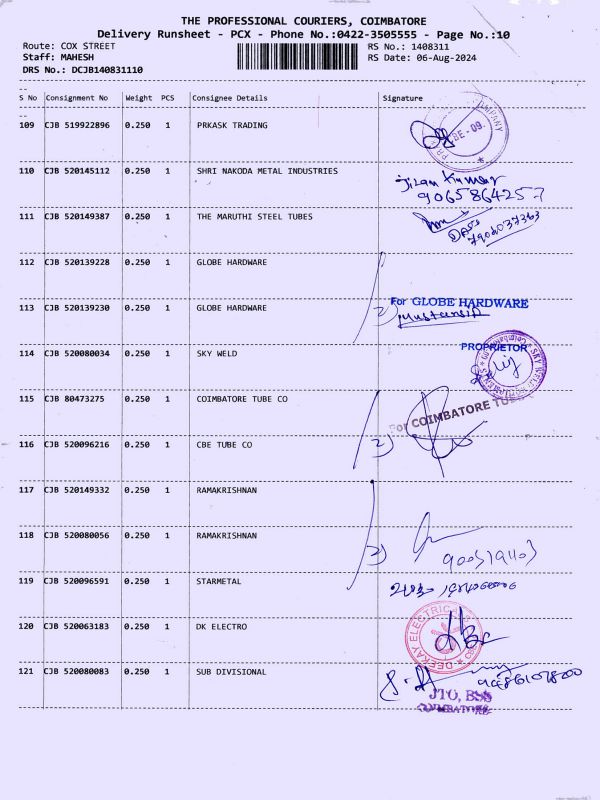 THE PROFESSIONAL COURIERS, COIMBATORE
Delivery Runsheet - PCX - Phone No.:0422-3505555 - Page No.:10
Route: COX STREET RS No.: 1408311
Staff: MAHESH RS Date: 06-Aug-2024
DRS No.: DCJB140831110
--
S No Consignment No Weight PCS Consignee Details Signature
--
109 CJB 519922896 0.250 1 PRKASK TRADING
110 CJB 520145112 0.250 1 SHRI NAKODA METAL INDUSTRIES
9065864257
111 CJB 520149387 0.250 1 THE MARUTHI STEEL TUBES
112 CJB 520139228 0.250 1 GLOBE HARDWARE
113 CJB 520139230 0.250 1 GLOBE HARDWARE 2) For GLOBE HARDWARE
PROPRIETOR
114 CJB 520080034 0.250 1 SKY WELD
115 CJB 80473275 0.250 1 COIMBATORE TUBE CO
For COIMBATORE TUBE
116 CJB 520096216 0.250 1 CBE TUBE CO 2)
117 CJB 520149332 0.250 1 RAMAKRISHNAN
118 CJB 520080056 0.250 1 RAMAKRISHNAN 2)
119 CJB 520096591 0.250 1 STARMETAL
120 CJB 520063183 0.250 1 DK ELECTRO
121 CJB 520080083 0.250 1 SUB DIVISIONAL
JTO, BSS